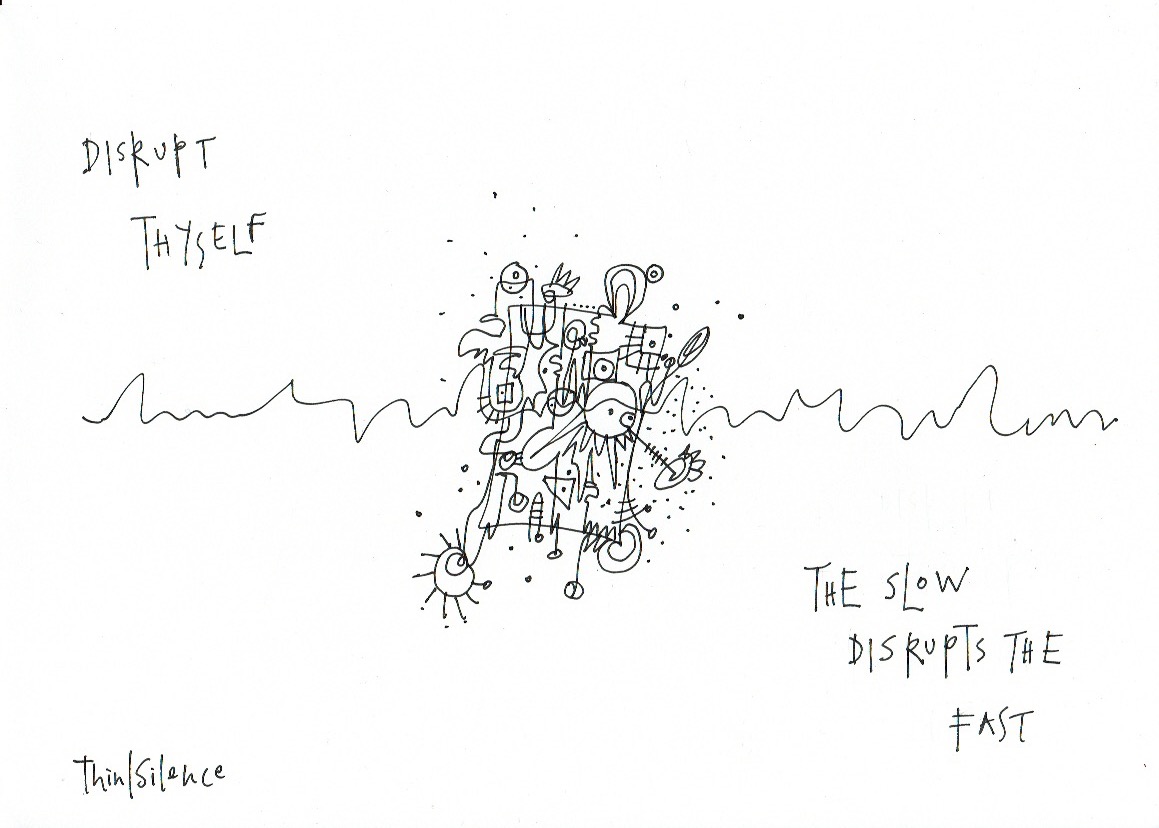 DISRUPT
THYSELF
THE SLOW
DISRUPTS THE
FAST
Thin/Silence